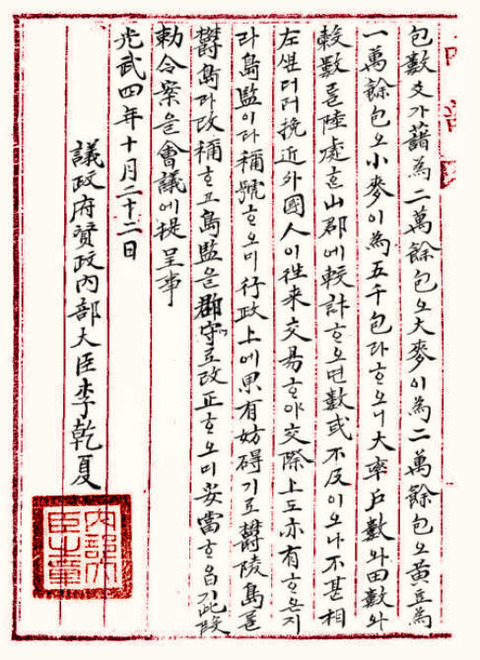 包數爻가藷為二萬餘包오大麥이為二萬餘包오黃豆為
一萬餘包오小麥이為五千包라ᄒᆞ오니大率戶數와田數와
穀數를陸處ᄒᆞᆫ山郡에較計ᄒᆞ오면數或不及이오나不甚相
左ᄲᅮᆫ더러挽近外國人이往來交易ᄒᆞ야交際上도亦有ᄒᆞ온지
라島監이라稱號ᄒᆞ오미行政上에果有妨碍기로鬱陵島를
鬱島라改稱ᄒᆞ고島監을郡守로改正ᄒᆞ오미妥當ᄒᆞ옵기此段
勅令案을會議에提呈事
光武四年十月二十二日
議政府贊政內部大臣李乾夏
內部大臣之章